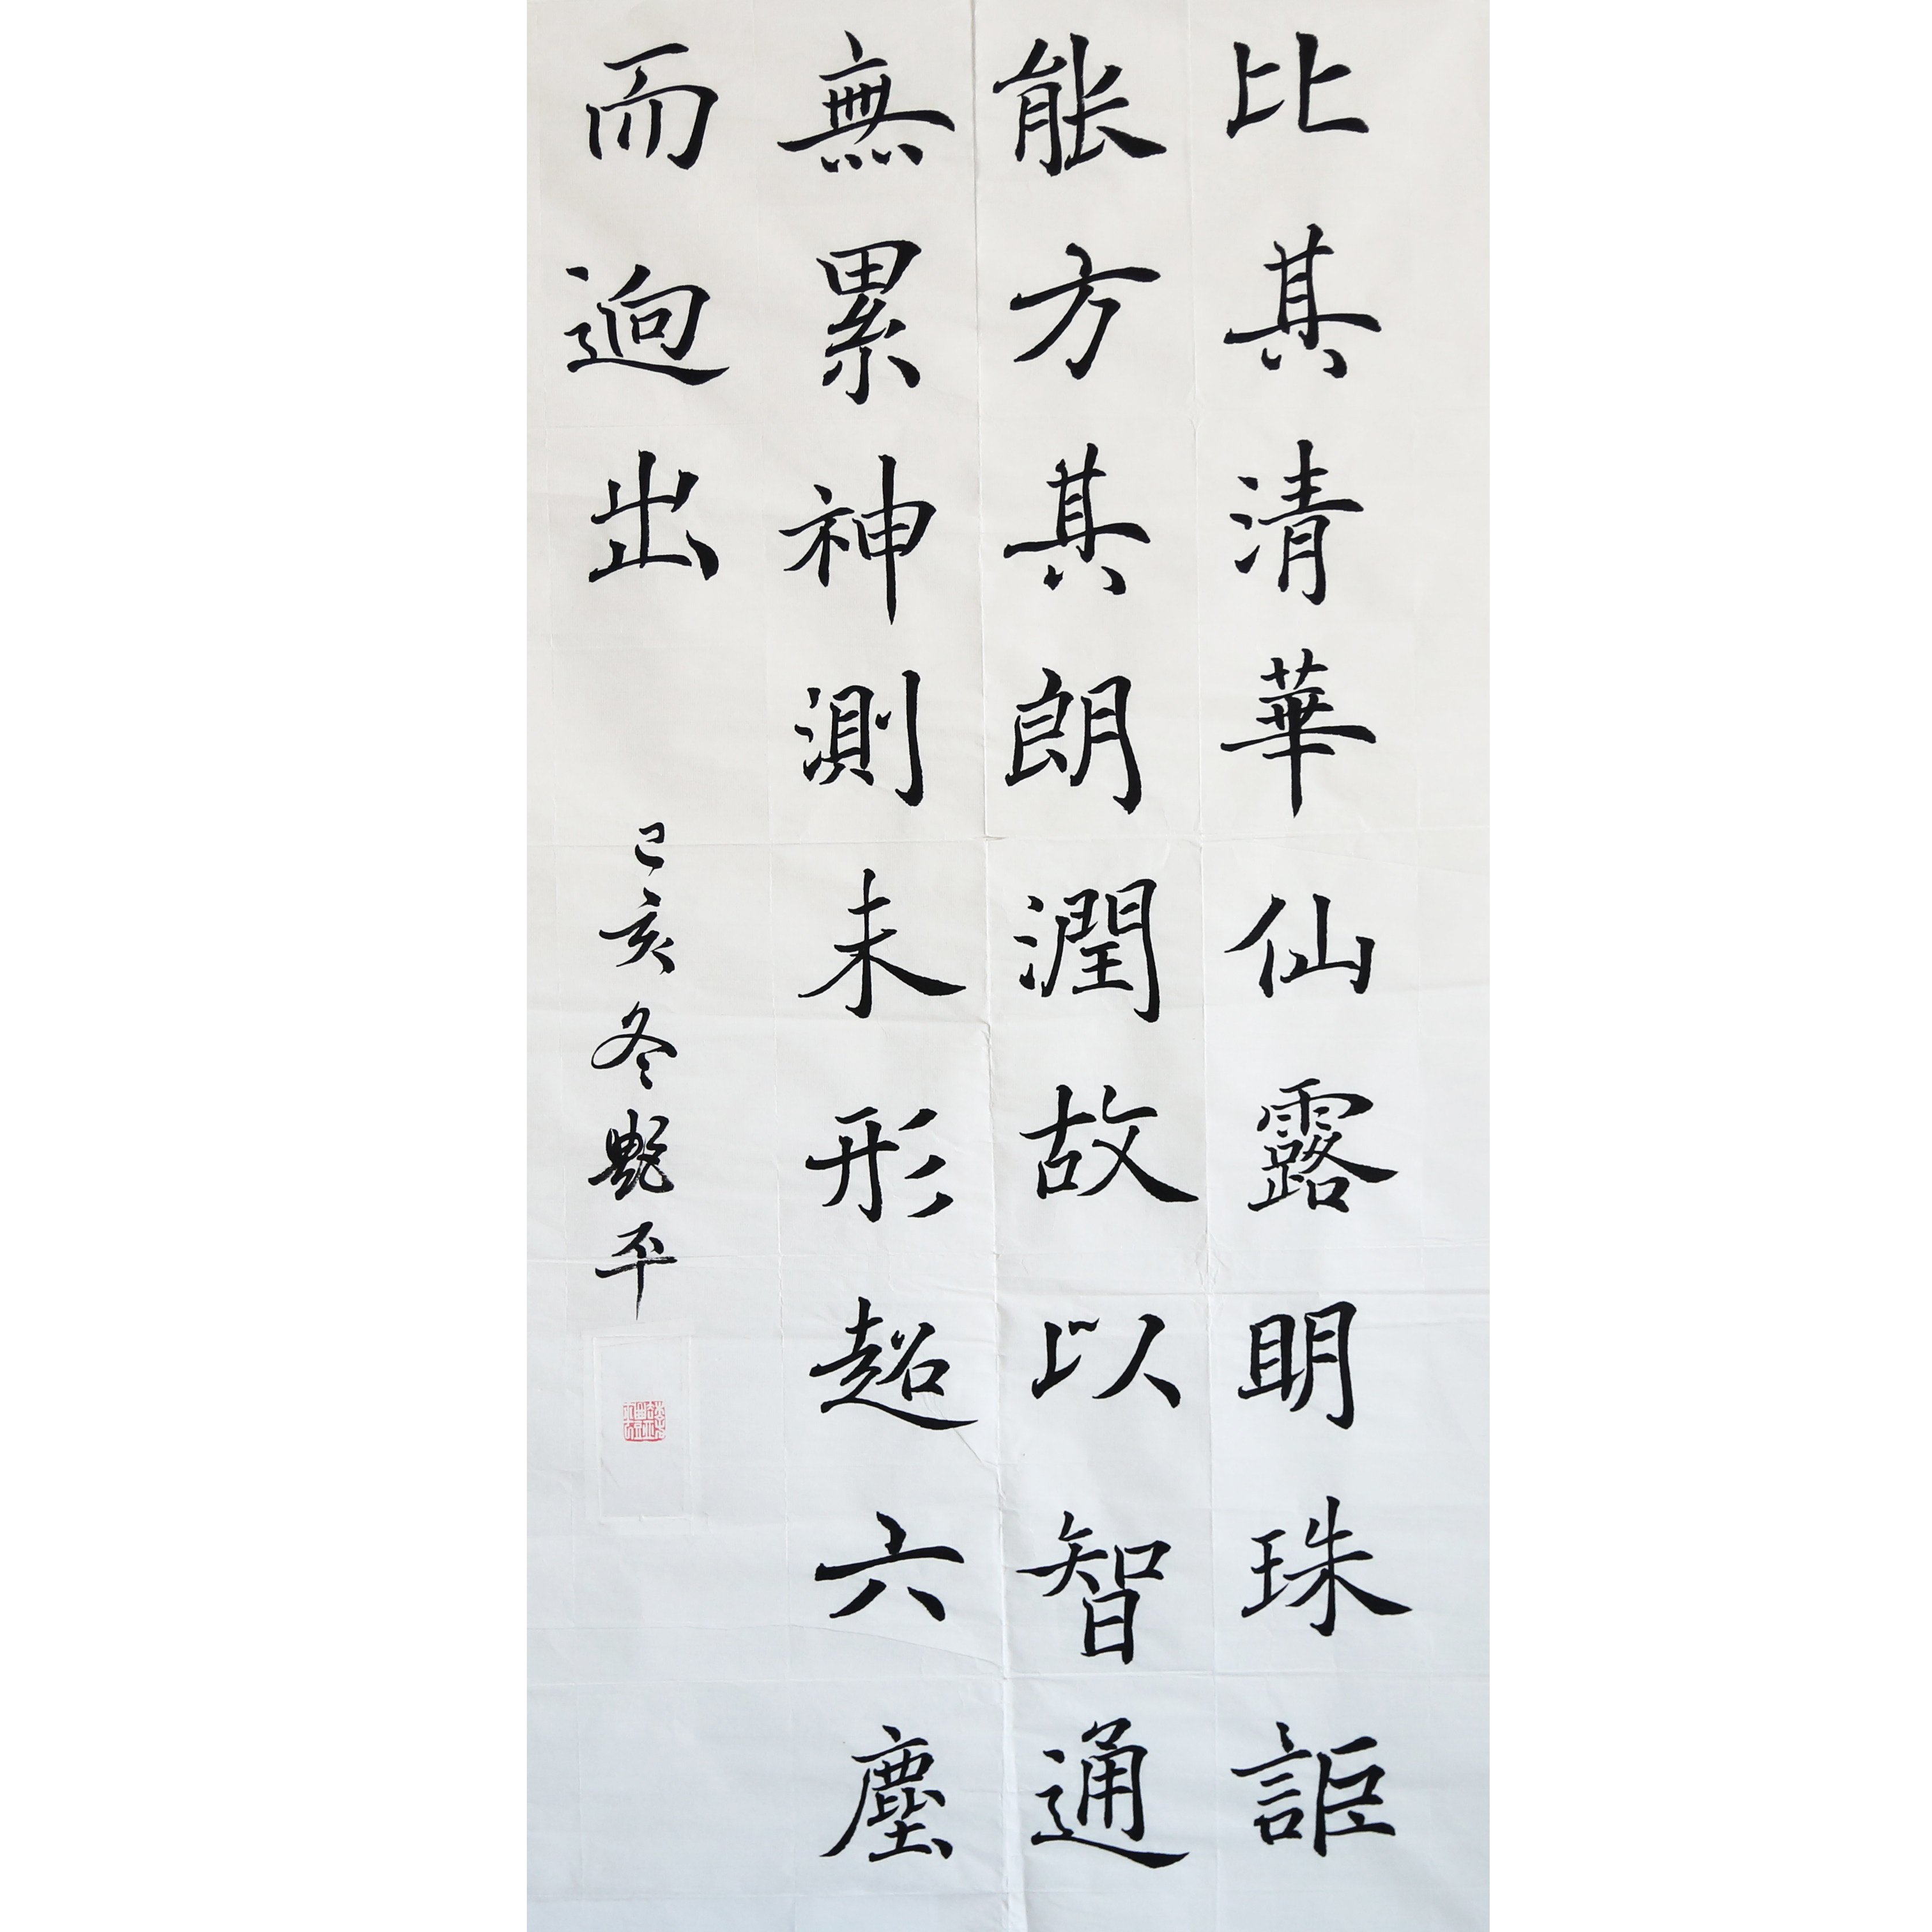 比其清華仙露明珠詎
能方其朗潤故以智通
無累神測未形超六塵
而迥出
己亥冬艷平